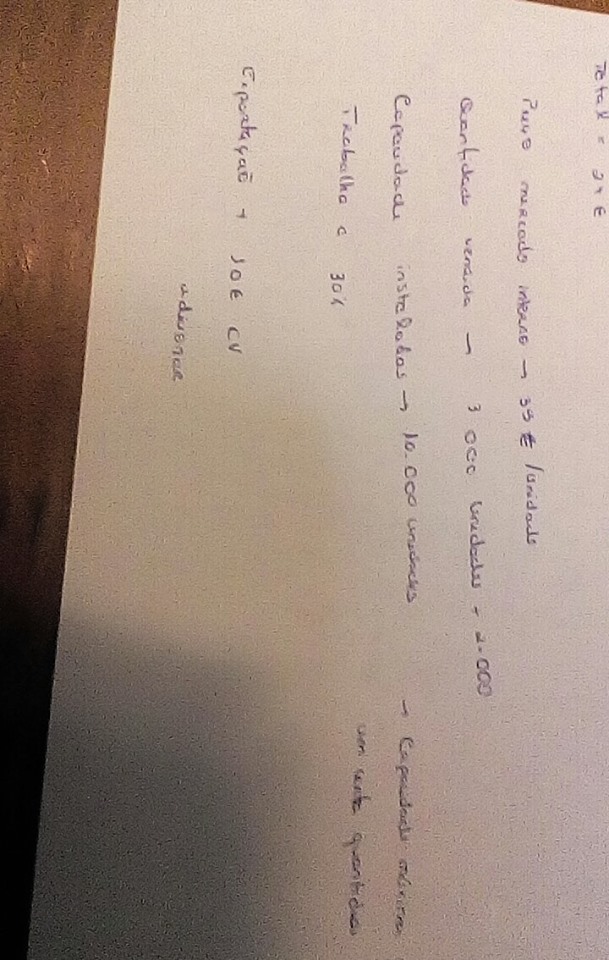 Total = 24 €
Preço mercado interno → 35 € /unidade
Quantidade vendida → 3 000 unidades + 2.000
Capacidade instaladas → 10.000 unidades → Capacidade
Trabalha a 30% quantidade
Exportação + 10€ CV
adicionar